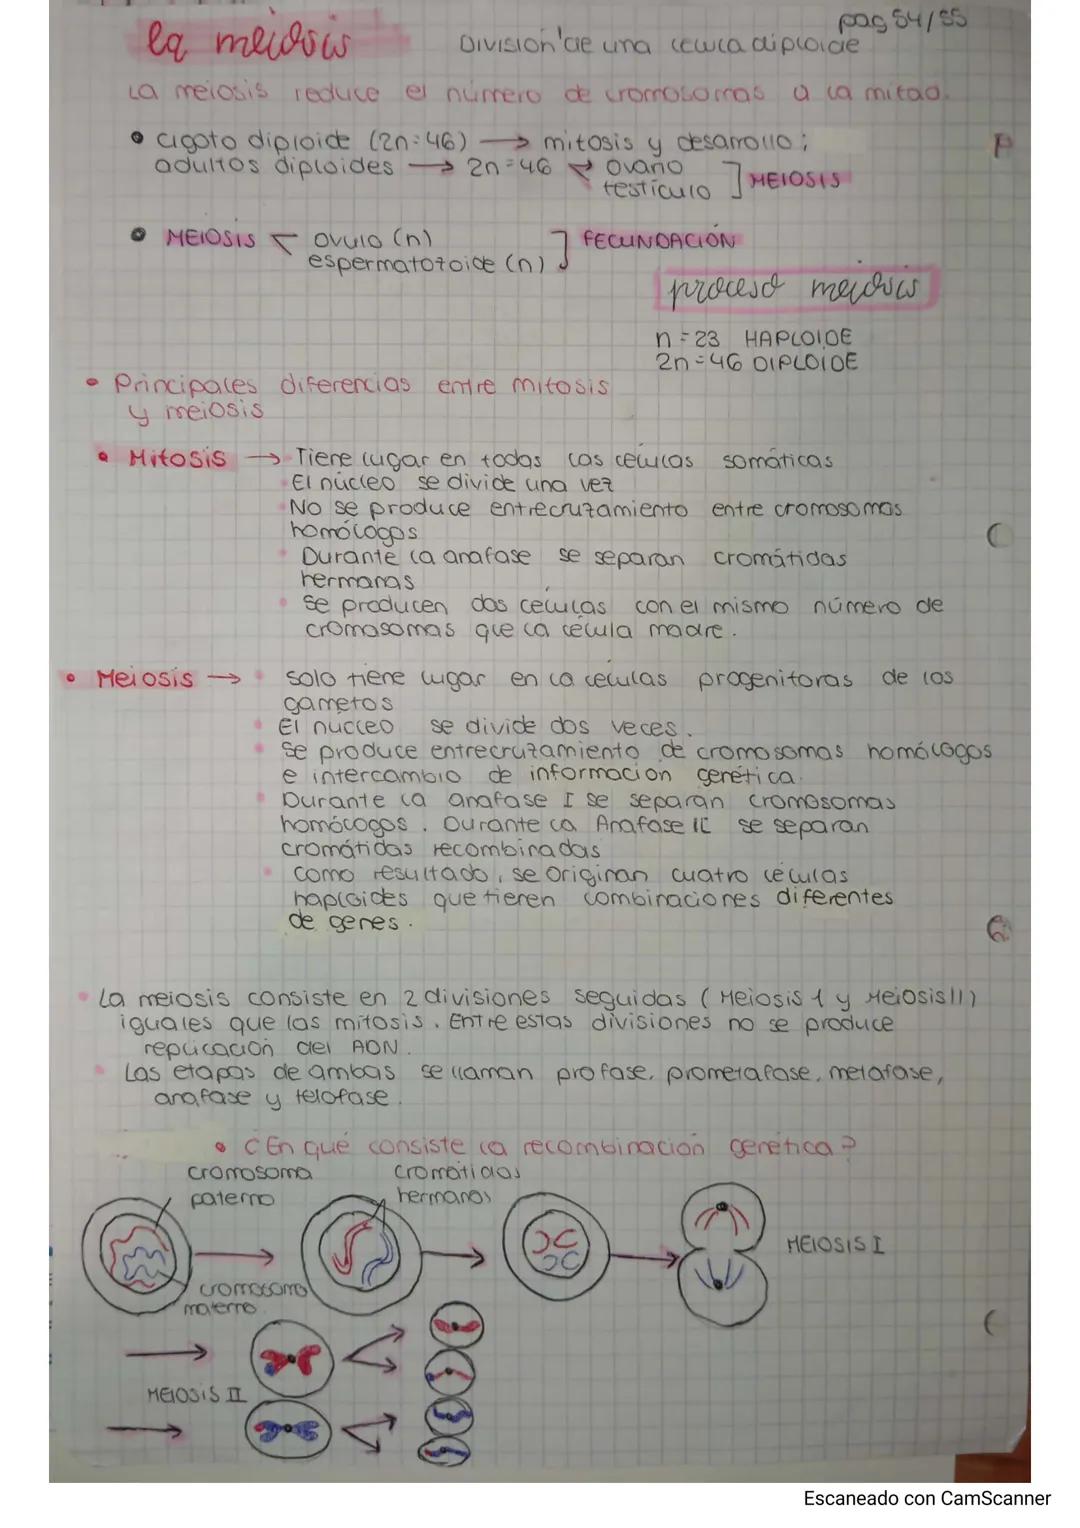 pag 54/55
la meiosis
División de una célula diploide
La meiosis reduce el número de cromosomas a la mitad.
cigoto diploide (2n=46) → mitosis y desarrollo;
adultos diploides → 2n=46
ovario
testículo
MEIOSIS
MEIOSIS
óvulo (n)
espermatozoide (n)
FECUNDACIÓN
proceso meiosis
n=23 HAPLOIDE
2n=46 DIPLOIDE
Principales diferencias entre mitosis
y meiosis
Mitosis → Tiene lugar en todas las células somáticas
El núcleo se divide una vez
No se produce entrecruzamiento entre cromosomas
homólogos
Durante la anafase se separan cromátidas
hermanas
Se producen dos células con el mismo número de
cromosomas que la célula madre.
Meiosis → Solo tiene lugar en la células progenitoras de los
gametos
El núcleo se divide dos veces.
Se produce entrecruzamiento de cromosomas homólogos
e intercambio de informacion genética.
Durante la anafase I se separan cromosomas
homólogos. Durante la Anafase II se separan
cromátidas recombinadas
Como resultado, se originan cuatro células
haploides que tienen combinaciones diferentes
de genes.
La meiosis consiste en 2 divisiones seguidas (Meiosis I y Meiosis II)
iguales que las mitosis. Entre estas divisiones no se produce
replicación del ADN.
Las etapas de ambas se llaman profase, prometafase, metafase,
anafase y telofase.
¿En qué consiste la recombinación genética?
cromosoma
paterno
cromátidas
hermanas
cromosoma
materno.
MEIOSIS I
MEIOSIS II
Escaneado con CamScanner